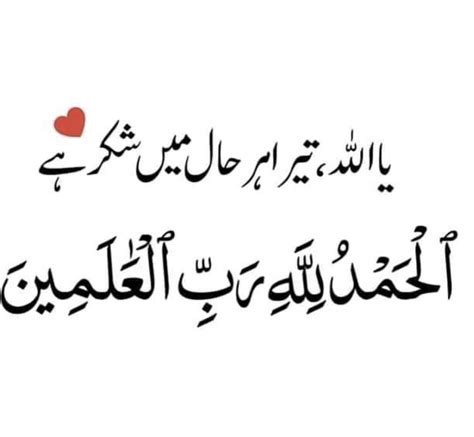 یا اللہ، تیرا ہر حال میں شکر ہے
ٱلْحَمْدُ لِلَّهِ رَبِّ ٱلْعَٰلَمِينَ